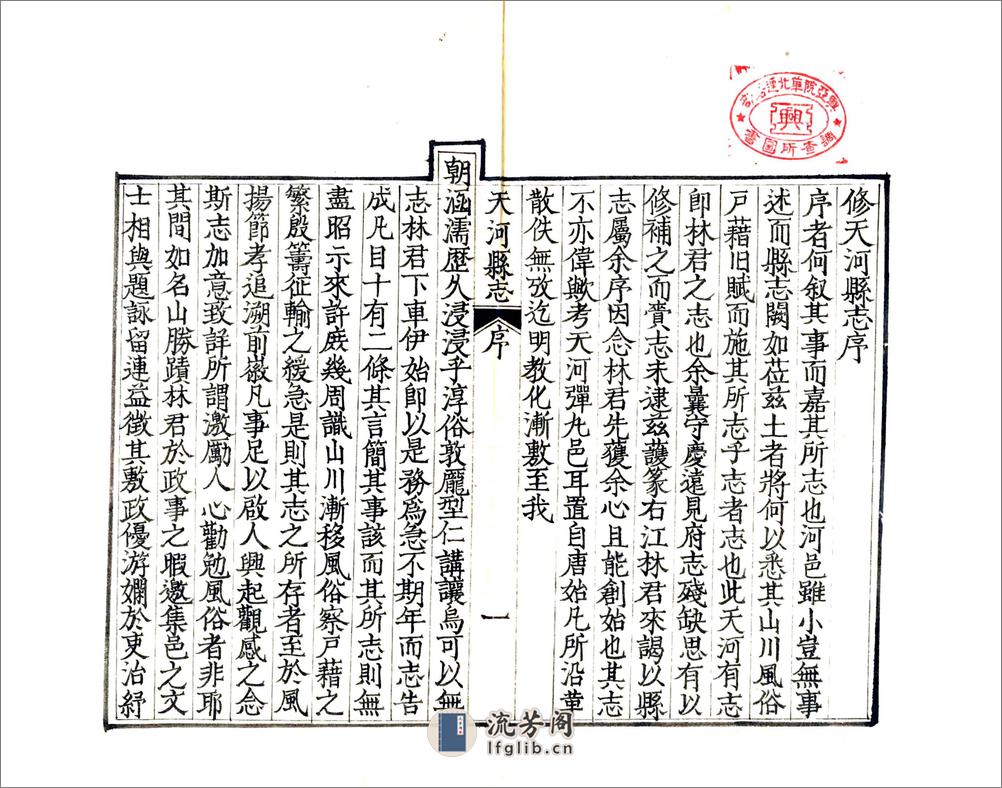 修天河縣志序
序者何叙其事而嘉其所志也河邑雖小豈無事
述而縣志闕如莅兹土者將何以悉其山川風俗
戸藉旧賦而施其所志乎志者志也此天河有志
即林君之志也余曩守慶遠見府志殘缺思有以
修補之而賫志未逮兹䕶篆右江林君來謁以縣
志屬余序因念林君先獲余心且能創始也其志
不亦偉歟考天河彈丸邑耳置自唐始凡所沿革
散佚無攷迄明教化漸敷至我
天河縣志
序
一
朝涵濡歴久浸浸乎淳俗敦龎型仁講讓烏可以無
志林君下車伊始即以是務為急不期年而志告
成凡目十有二條其言簡其事該而其所志則無
盡昭示來許庻幾周識山川漸移風俗察戸藉之
繁殷籌征輸之緩急是則其志之所存者至於風
揚節孝追溯前徽凡事足以啟人興起觀感之念
斯志加意致詳所謂激勵人心勸勉風俗者非耶
其間如名山勝蹟林君於政事之暇邀集邑之文
士相與題詠留連益徵其敷政優游嫻於吏治紓
興亞院華北連絡部
興
調查所圖書
流芳阁
lfglib.cn